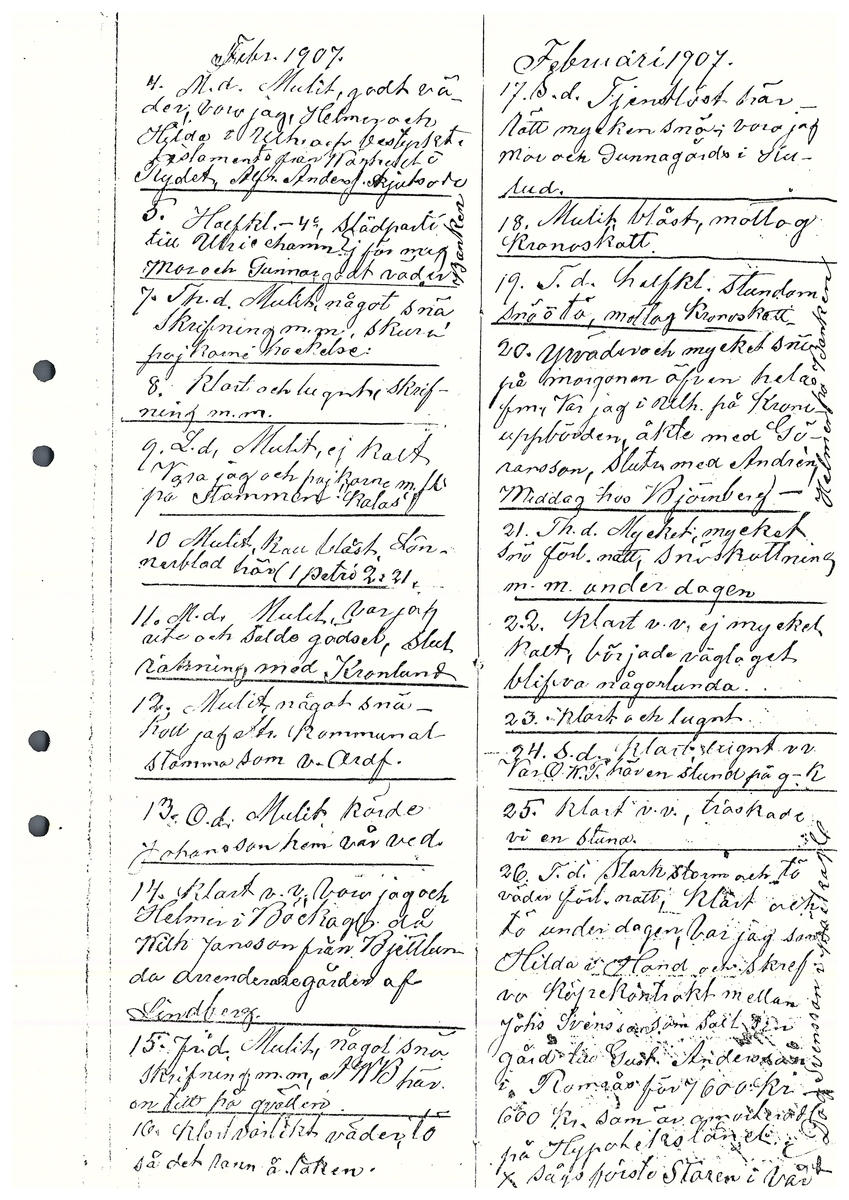 Febr. 1907.
4. M.d. Mulit, godt vä-
der, voro jag, Helmer och
Hilda i Ulh. och bestyrkt
testamente från
Rydet, Alfr. Anders. skjutsade
5. Halfkl. -4°, Städparti
till Ulricehamn ej för mig
Mor och Gunnar, godt väder
Banken
7. Th.d. Mulit, något snö
Skrifning m.m. skura
pojkarne hackelse.
8. Klart och lugnt, skrif-
ning m.m.
9. L.d. Mulit, ej kalt
Vara jag och pojkarne m.fl.
på Stämmen "Kalas"
10 Mulit, kall blåst, Lön-
nerblad här (1 Petri 2: 21.
11. M.d. Mulit, var jag
ute och sålde gödsel, Slut
räkning med Kronlund
12. Mulit, något snö-
höll jag Kommunal
stämma som v. Ordf.
13. O.d. Mulit, körde
Johansson hem vår ved.
14. Klart v.v., voro jag och
Helmer i Bockag. då
Wilh Jansson från Bjettlun-
da arrenderade gården af
Lindberg.
15. Fr.d. Mulit, något snö
Skrifning m.m, här
en titt på qvällen.
16. Klart vårlikt väder, tö
så det rann å taken.
Februari 1907.
17. S.d. Tjenstlöst här-
Nätt mycken snö; voro jag
Mor och Gunnagårds i
lud.
18. Mulit, blåst, mottog
Kronoskatt.
19. T.d. halfkl. stundom
snö o tö, mottog Kronoskatt
20. Yrväder och mycket snö
på morgonen äfven hela
fm, Var jag i Ulh. på Krono
uppbörden, åkte med Gö-
ransson, Slutr. med Andrén
Middag hos Björnberg -
Helmer på Banken
21. Th.d. Mycket, mycket
snö förl. natt, snöskottning
m.m. under dagen
22. Klart v.v. ej mycket
kalt, började väglaget
blifva någorlunda.
23. Klart och lugnt
24. S.d. Klart lugnt vv
Var O.K.P. här en stund på g-k
25. Klart v.v., tröskade
vi en stund.
26. T.d. Stark storm och tö
väder förl. natt, Klart och
tö under dagen, var jag som
Hilda i Hand och skref
vo Köpekontrakt mellan
Johs Svensson som sålt sin
gård till Gust. Andersson
i Romsås för 7600 kr
600 kr. som är amorteradt
på Hypotekslånet.
x Sågs förste Staren i Vår